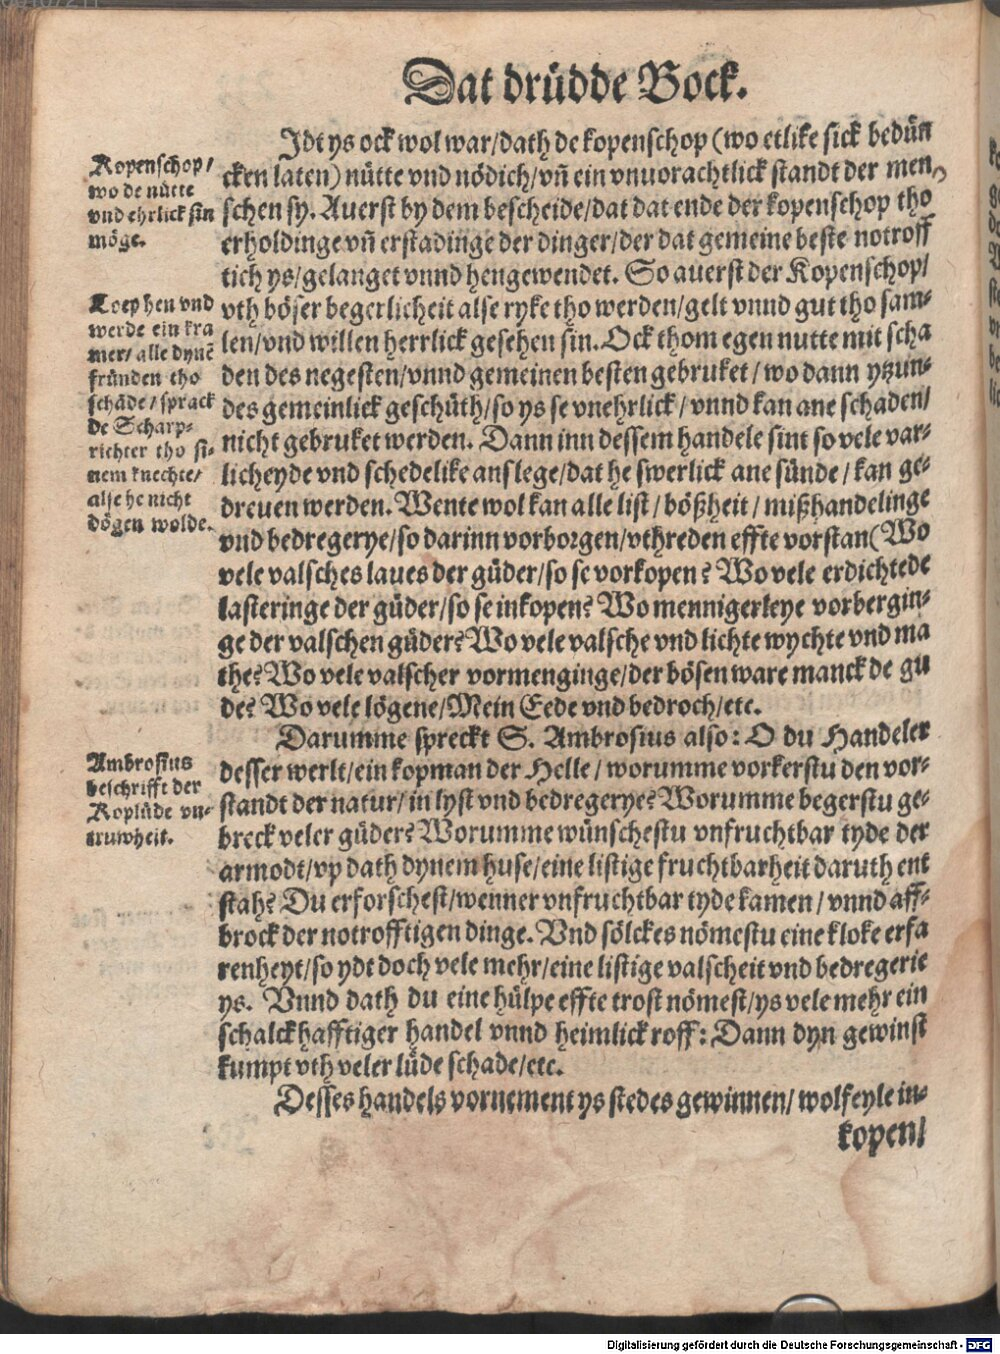 Dat drüdde Bock.
Jdt ys ock wol war/dath de kopenschop (wo etlike sick bedün
cken laten) nütte vnd nödich/vñ ein vnuorachtlick standt der men-
schen sy. Auerst by dem bescheide/dat dat ende der kopenschop tho
erholdinge vñ erstadinge der dinger/der dat gemeine beste notroff
tich ys/gelanget vnnd hengewendet. So auerst der Kopenschop/
vth böser begerlicheit alse ryke tho werden/gelt vnnd gut tho sam-
len/vnd willen herrlick gesehen sin. Ock thom egen nutte mit scha
den des negesten/vnnd gemeinen besten gebruket/wo dann ytzun-
des gemeinlick geschüth/so ys se vnehrlick/vnnd kan ane schaden/
nicht gebruket werden. Dann inn dessem handele sint so vele var-
licheyde vnd schedelike anslege/dat he swerlick ane sünde/kan ge-
dreuen werden. Wente wol kan alle list/bößheit/mißhandelinge
vnd bedregerye/so darinn vorborgen/vthreden effte vorstan(Wo
vele valsches laues der güder/so se vorkopen? Wo vele erdichtede
lasteringe der güder/so se inkopen? Wo mennigerleye vorbergin-
ge der valschen güder? Wo vele valsche vnd lichte wychte vnd ma
the? Wo vele valscher vormenginge/der bösen ware manck de gu
de? Wo vele lögene/Mein Eede vnd bedroch/etc.
Darumme spreckt S. Ambrosius also: O du Handeler
desser werlt/ein kopman der Helle/worumme vorkerstu den vor-
standt der natur/in lyst vnd bedregerye? Worumme begerstu ge-
breck veler güder? Worumme wünschestu vnfruchtbar tyde der
armodt/vp dath dynem huse/eine listige fruchtbarheit daruth ent
stah? Du erforschest/wenner vnfruchtbar tyde kamen/vnnd aff-
brock der notrofftigen dinge. Vnd sölckes nömestu eine kloke erfa
renheyt/so ydt doch vele mehr/eine listige valscheit vnd bedregerie
ys. Vnnd dath du eine hülpe effte trost nömest/ys vele mehr ein
schalckhafftiger handel vnnd heimlick roff: Dann dyn gewinst
kumpt vth veler lüde schade/etc.
Desses handels vornement ys stedes gewinnen/wolfeyle in-
kopen/
Kopenschop/
wo de nütte
vnd ehrlick sin
möge.
Loep hen vnd
werde ein kra
mer/alle dynē
fründen tho
schade/sprack
de Scharp-
richter tho si-
nem knechte/
alse he nicht
dögen wolde.
Ambrosius
beschrifft der
Koplüde vn-
truwheit.
Digitalisierung gefördert durch die Deutsche Forschungsgemeinschaft - DFG